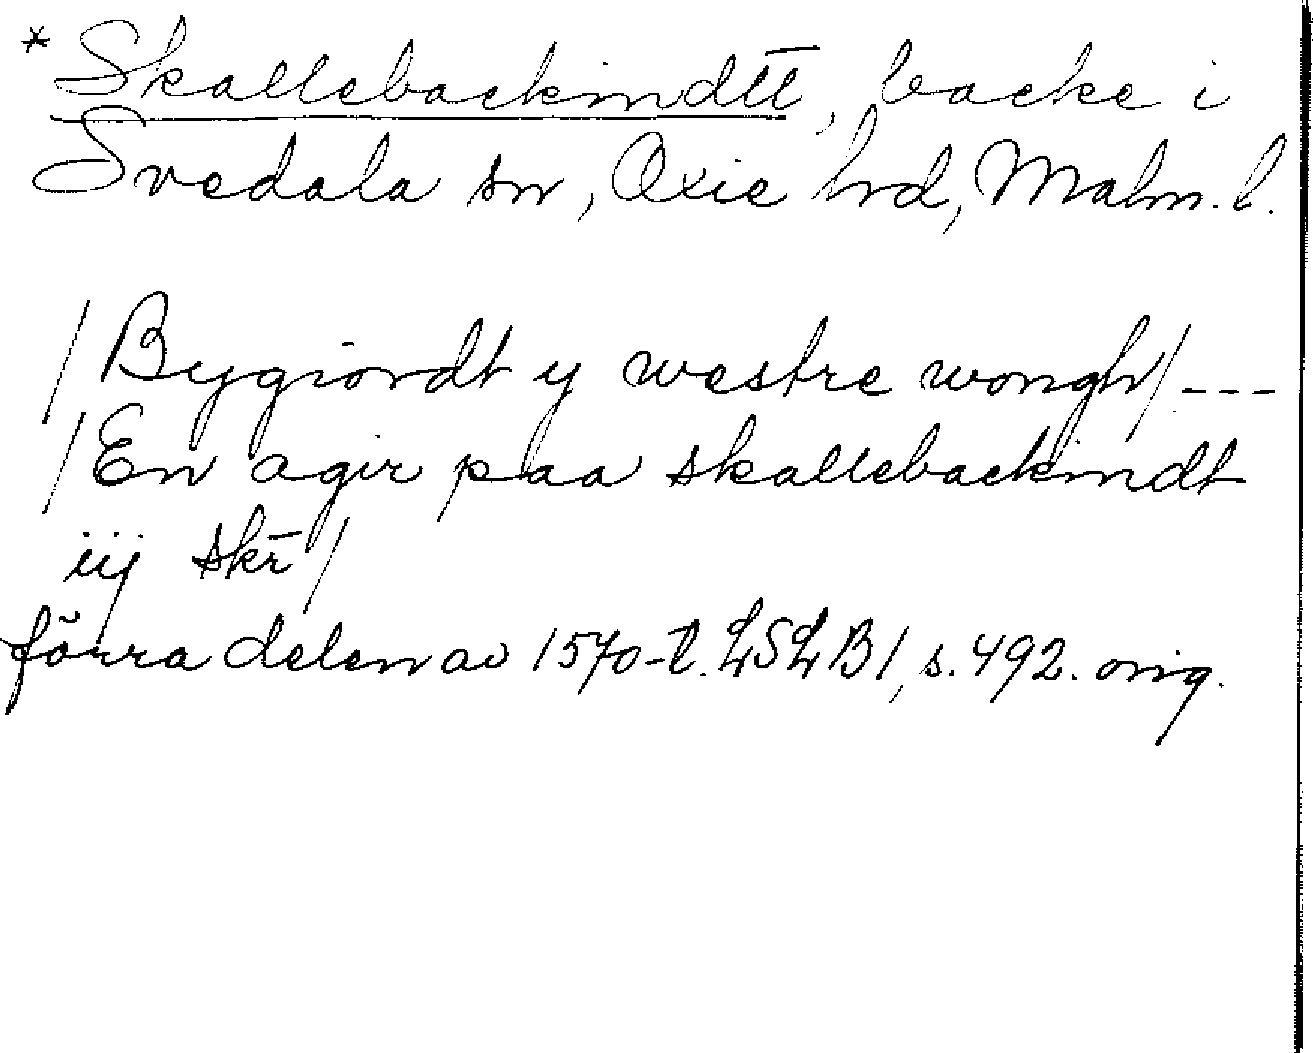 *Skallebackindtt, backe i
Svedala sn, Oxie hrd, Malm. l.
/Bygiordt y westre wongh/ ---
/En agir paa skallebackindt
iij skr̄/
förra delen av 1570-t. LSLB1, s. 492. orig.